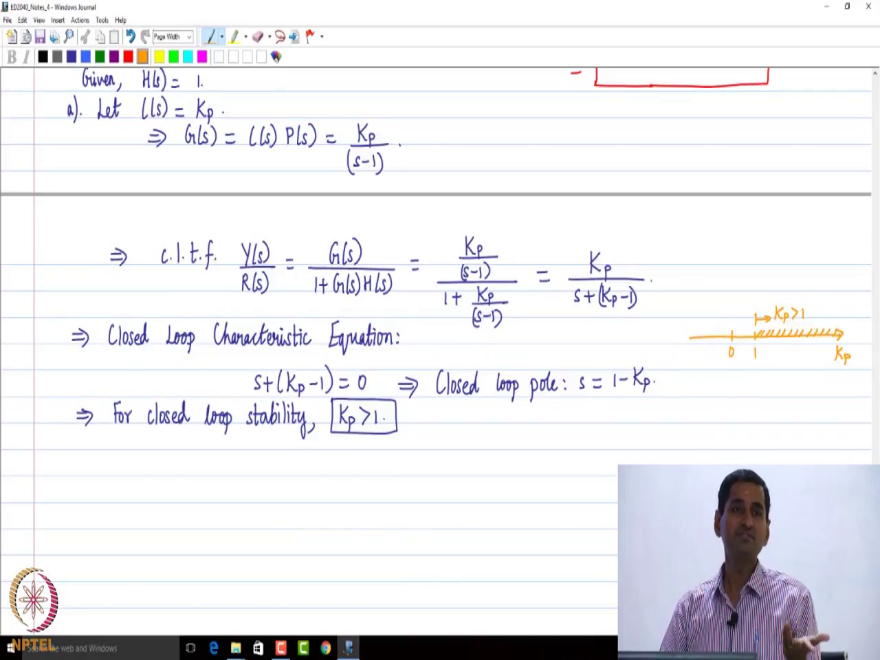 ED2040_Notes_4 - Windows Journal
File Edit View Insert Actions Tools Help
Page Width
B I
Given, H(s) = 1.
a). Let C(s) = Kp.
⇒ G(s) = C(s) P(s) = Kp/(s-1).
⇒ c.l.t.f. Y(s)/R(s) = G(s)/(1+G(s)H(s)) = (Kp/(s-1))/(1+Kp/(s-1)) = Kp/(s+(Kp-1)).
Kp>1
0 1 Kp
⇒ Closed Loop Characteristic Equation:
s+(Kp-1)=0 ⇒ Closed loop pole: s = 1-Kp.
⇒ For closed loop stability, Kp>1.
NPTEL
the web and Windows